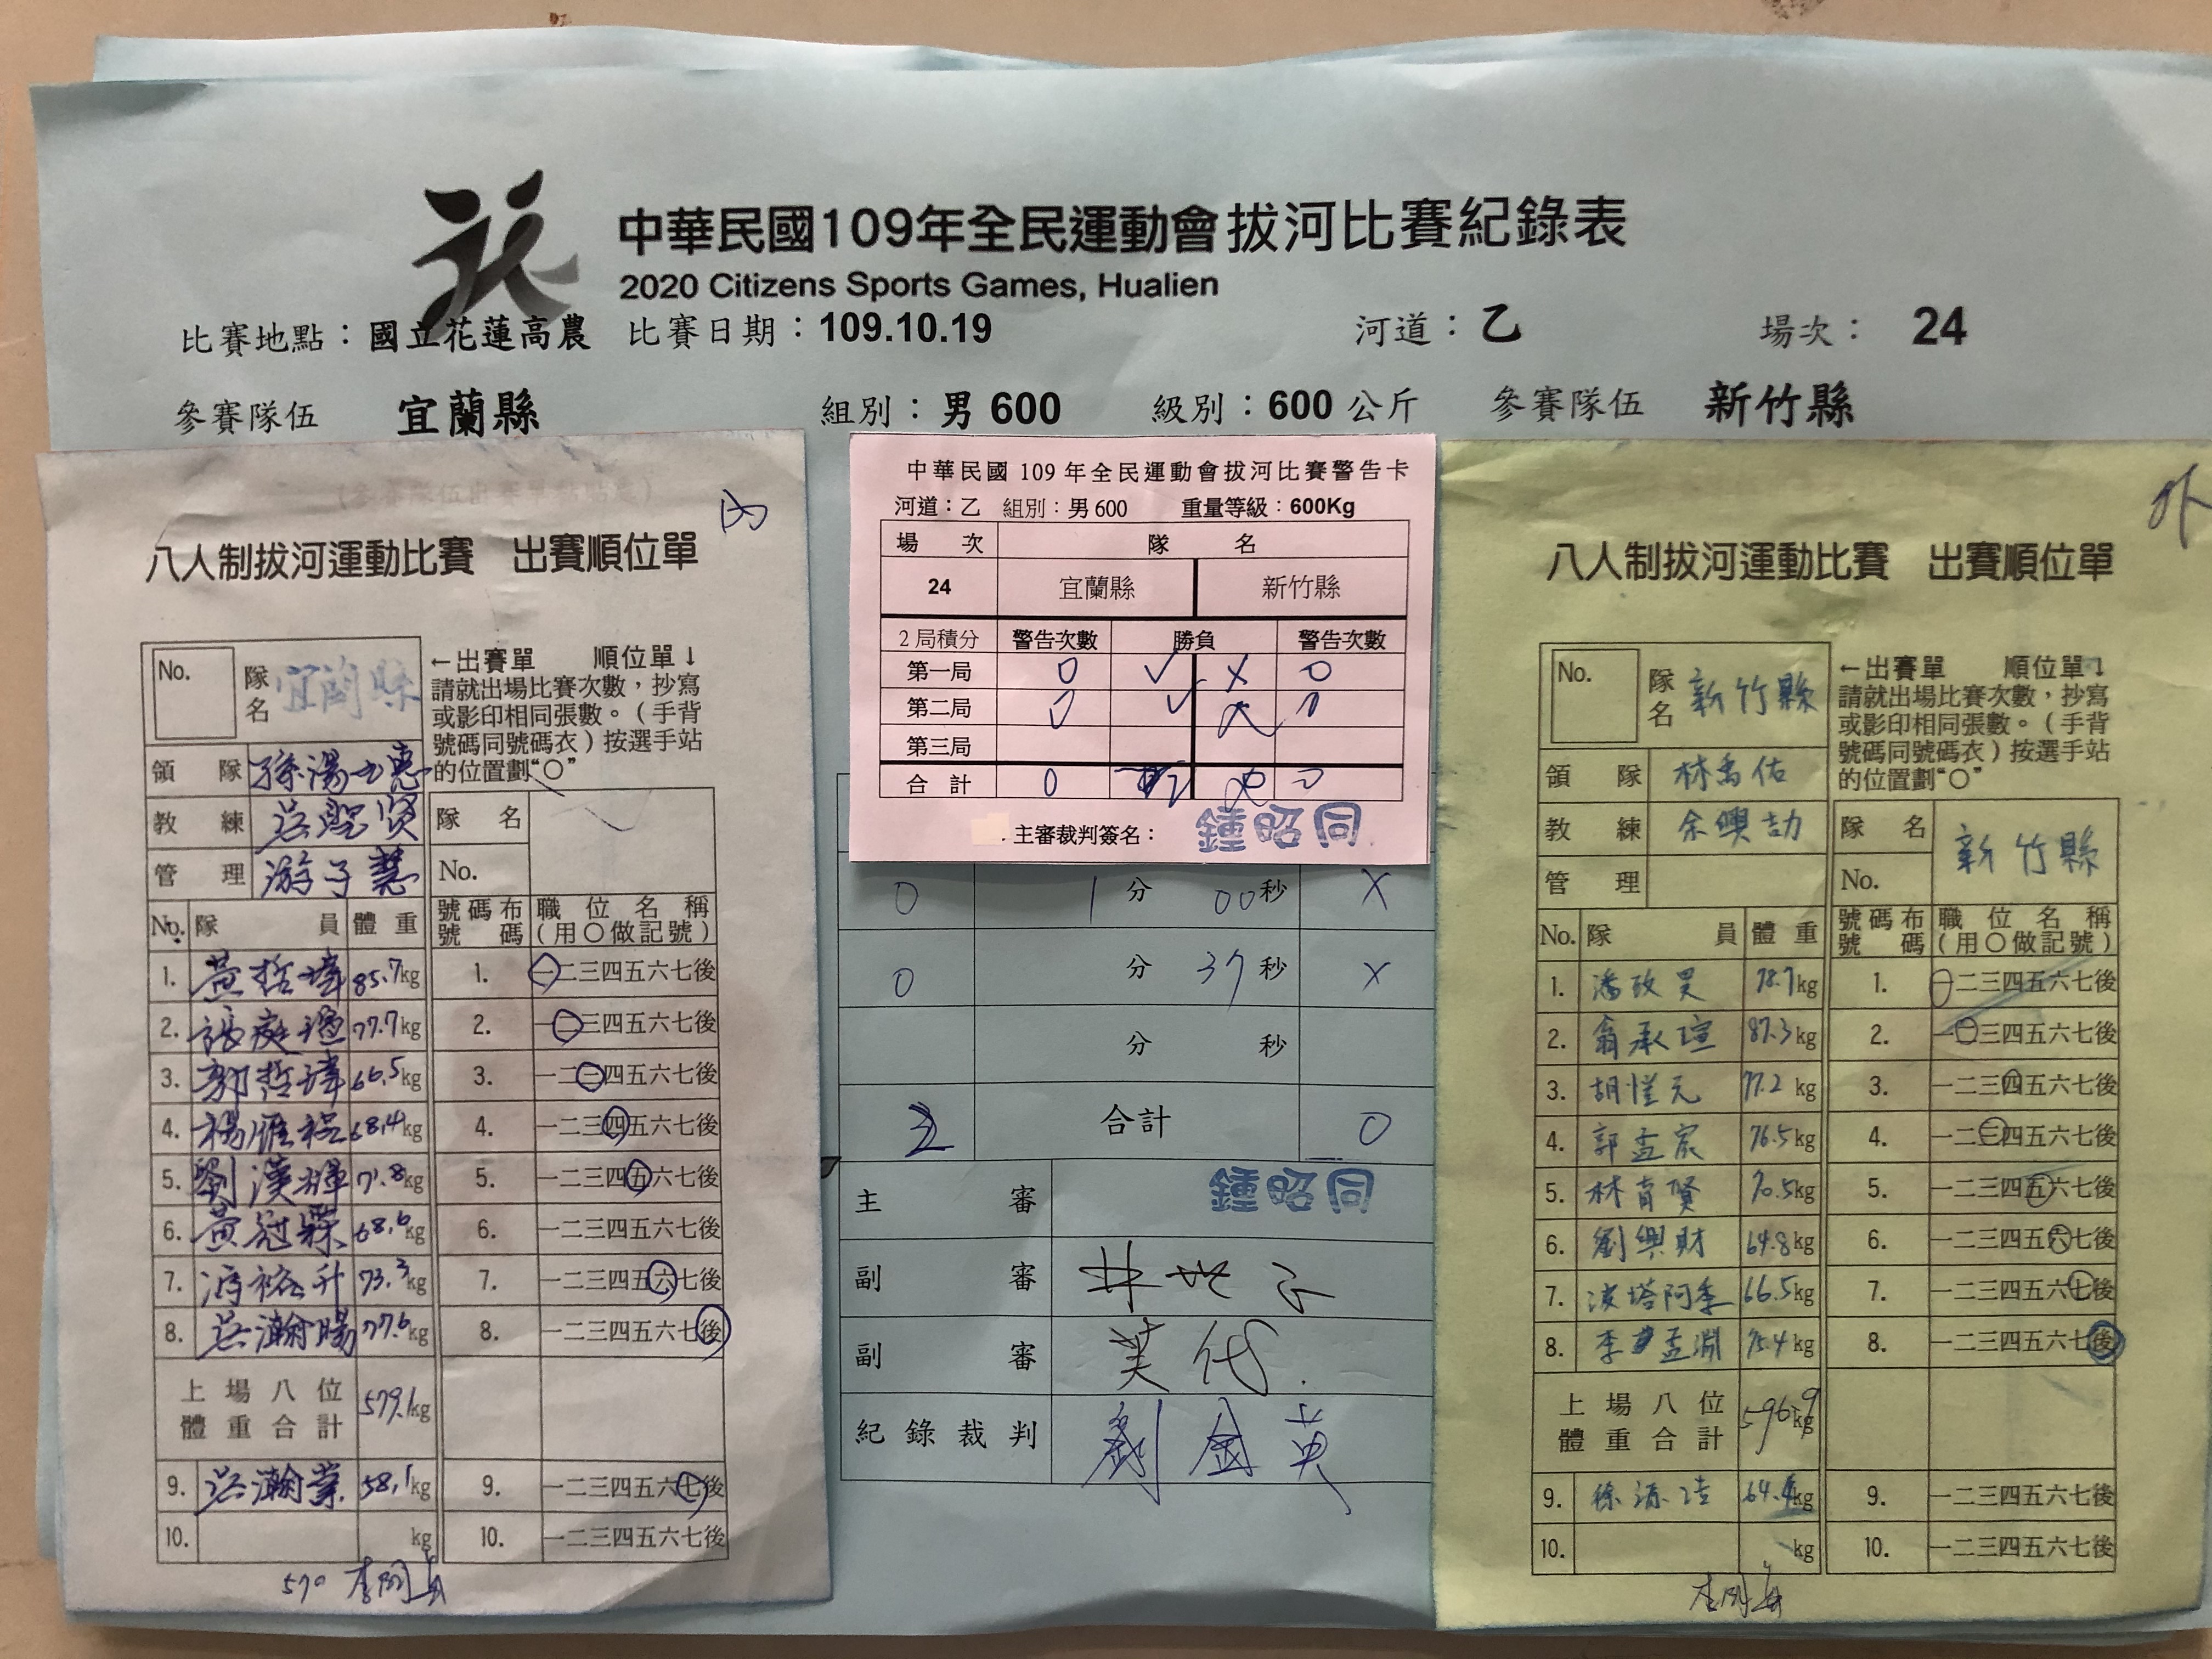 中華民國109年全民運動會拔河比賽紀錄表
2020 Citizens Sports Games, Hualien
比賽地點：國立花蓮高農 比賽日期：109.10.19 河道：乙 場次： 24
參賽隊伍 宜蘭縣 組別：男 600 級別：600 公斤 參賽隊伍 新竹縣
(參賽隊伍出賽單黏貼處)
內
八人制拔河運動比賽 出賽順位單
No. 隊名 宜蘭縣
←出賽單 順位單↓
請就出場比賽次數，抄寫
或影印相同張數。（手背
號碼同號碼衣）按選手站
的位置劃“○”
領隊 孫湯玉惠
教練 吳聖賢
管理 游子慧
隊名
No.
No. 隊員 體重 號碼布號碼 職位名稱（用○做記號）
1. 黃哲瑋 85.7kg 1. 一二三四五六七後
2. 張庭 77.7kg 2. 一二三四五六七後
3. 郭哲瑋 66.5kg 3. 一二三四五六七後
4. 楊 68.4kg 4. 一二三四五六七後
5. 劉漢輝 71.8kg 5. 一二三四五六七後
6. 黃冠霖 68.6kg 6. 一二三四五六七後
7. 馮裕升 73.3kg 7. 一二三四五六七後
8. 吳瀚暘 77.6kg 8. 一二三四五六七後
上場八位體重合計 579.1kg
9. 吳瀚業 58.1kg 9. 一二三四五六七後
10. kg 10. 一二三四五六七後
570
中華民國 109 年全民運動會拔河比賽警告卡
河道：乙 組別：男 600 重量等級：600Kg
場次 隊名
24 宜蘭縣 新竹縣
2 局積分 警告次數 勝負 警告次數
第一局 0 ✓ × 0
第二局 0 ✓ × 0
第三局
合計 0 0
主審裁判簽名： 鍾昭同
0 1 分 00 秒 X
0 分 37 秒 X
分 秒
2 合計 0
主審 鍾昭同
副審
副審
紀錄裁判 劉金英
外
八人制拔河運動比賽 出賽順位單
No. 隊名 新竹縣
←出賽單 順位單↓
請就出場比賽次數，抄寫
或影印相同張數。（手背
號碼同號碼衣）按選手站
的位置劃“○”
領隊 林禹佑
教練 余興劼
管理
隊名 新竹縣
No.
No. 隊員 體重 號碼布號碼 職位名稱（用○做記號）
1. 潘政昊 78.7kg 1. 一二三四五六七後
2. 翁承瑄 87.3kg 2. 一二三四五六七後
3. 胡愷元 77.2 kg 3. 一二三四五六七後
4. 郭孟宸 76.5kg 4. 一二三四五六七後
5. 林育賢 70.5kg 5. 一二三四五六七後
6. 劉興財 64.8kg 6. 一二三四五六七後
7. 波塔阿季 66.5kg 7. 一二三四五六七後
8. 李孟淵 75.4kg 8. 一二三四五六七後
上場八位體重合計 596.9kg
9. 徐 64.4kg 9. 一二三四五六七後
10. kg 10. 一二三四五六七後